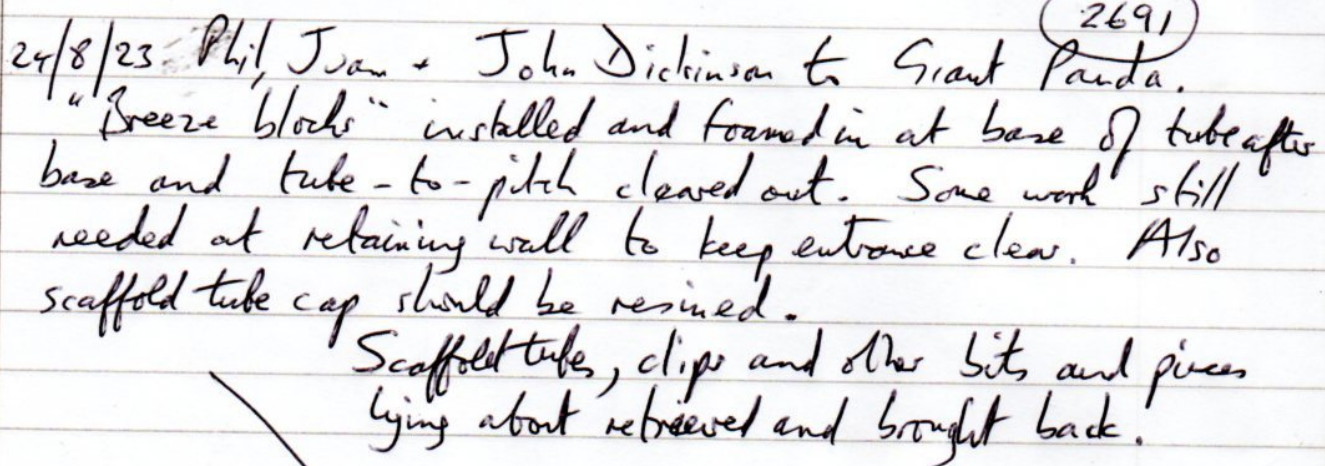 2691
24/8/23 Phil, Juan + John Dickinson to Giant Panda.
"Breeze blocks" installed and foamed in at base of tube after
base and tube-to-pitch cleared out. Some work still
needed at retaining wall to keep entrance clear. Also
scaffold tube cap should be resined.
Scaffold tubes, clips and other bits and pieces
lying about retrieved and brought back.